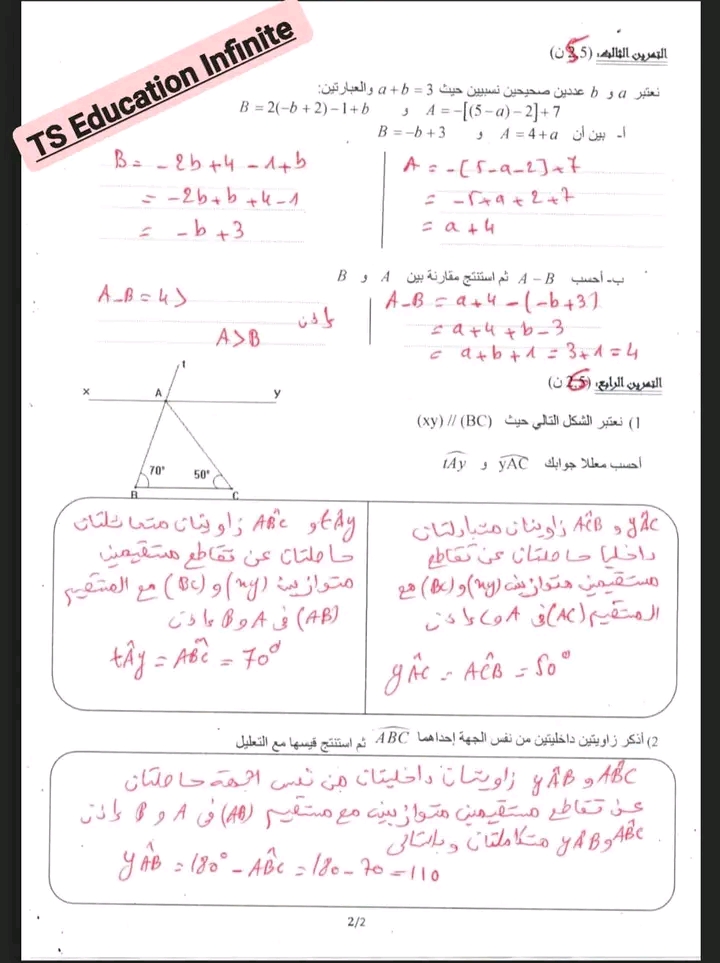 TS Education Infinite
التمرين الثالث: (5 ن)
نعتبر a و b عددين صحيحين نسبيين حيث a + b = 3 والعبارتين:
A = −[(5 − a) − 2] + 7 و B = 2(−b + 2) − 1 + b
أ- بين أن A = 4 + a و B = −b + 3
A = -[5-a-2]+7
= -5+a+2+7
= a+4
B = -2b+4-1+b
= -2b+b+4-1
= -b+3
ب- أحسب A − B ثم استنتج مقارنة بين A و B
A-B = a+4-(-b+3)
= a+4+b-3
= a+b+1 = 3+1 = 4
A-B = 4>
إذن
A>B
التمرين الرابع: (5 ن)
1) نعتبر الشكل التالي حيث (xy) // (BC)
أحسب معللا جوابك yAC و tAy
t
x
A
y
70°
50°
B
C
yÂC و AĈB زاويتان متبادلتان
داخليا حاصلتان عن تقاطع
مستقيمين متوازيين (xy) و (BC) مع
المستقيم (AC) في A و C إذن
yÂC = AĈB = 50°
tÂy و AB̂C زاويتان متماثلتان
حاصلتان عن تقاطع مستقيمين
متوازيين (xy) و (BC) مع المستقيم
(AB) في A و B إذن
tÂy = AB̂C = 70°
2) أذكر زاويتين داخليتين من نفس الجهة إحداهما ABC ثم استنتج قيسها مع التعليل
AB̂C و yÂB زاويتان داخليتان من نفس الجهة حاصلتان
عن تقاطع مستقيمين متوازيين مع مستقيم (AB) في A و B إذن
AB̂C و yÂB متكاملتان وبالتالي
yÂB = 180° - AB̂C = 180 - 70 = 110
2/2